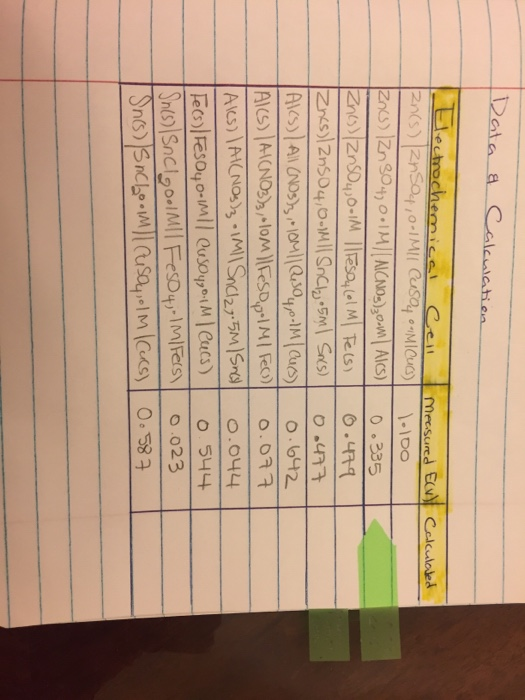 Data & Calculation
Electrochemical Cell | Measured E(V) | Calculated
Zn(s) | ZnSO4, 0.1M || CuSO4 0.1M | Cu(s) 1.100
Zn(s) | ZnSO4, 0.1M || Al(NO3)3 0.1M | Al(s) 0.335
Zn(s) | ZnSO4, 0.1M || FeSO4 (0.1M | Fe(s) 0.479
Zn(s) | ZnSO4, 0.1M || SnCl2, .5M | Sn(s) 0.477
Al(s) | Al (NO3)3, .10M || CuSO4, 0.1M | Cu(s) 0.642
Al(s) | Al(NO3)3, .10M || FeSO4, .1M | Fe(s) 0.077
Al(s) | Al(NO3)3 .1M | SnCl2, .5M | Sn(s) 0.044
Fe(s) | FeSO4 0.1M || CuSO4, 0.1M | Cu(s) 0.544
Sn(s) | SnCl2 0.1M || FeSO4, .1M | Fe(s) 0.023
Sn(s) | SnCl2 0.1M || CuSO4, .1M | Cu(s) 0.587